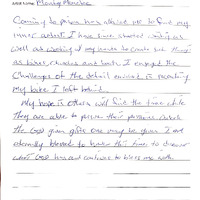 Coming to prison has allowed me to find my
inner artist I have since started writing as
well as working w/ my hands to create such things
as bikes, and boats I enjoyed the
challenges of the detail involved in
my bike I left behind
My hope is others will find the time while
They are able to pursue their passions
the God given gifts one may be given I am
eternally blessed to have this time to discover
what GOD has and continues to bless me with